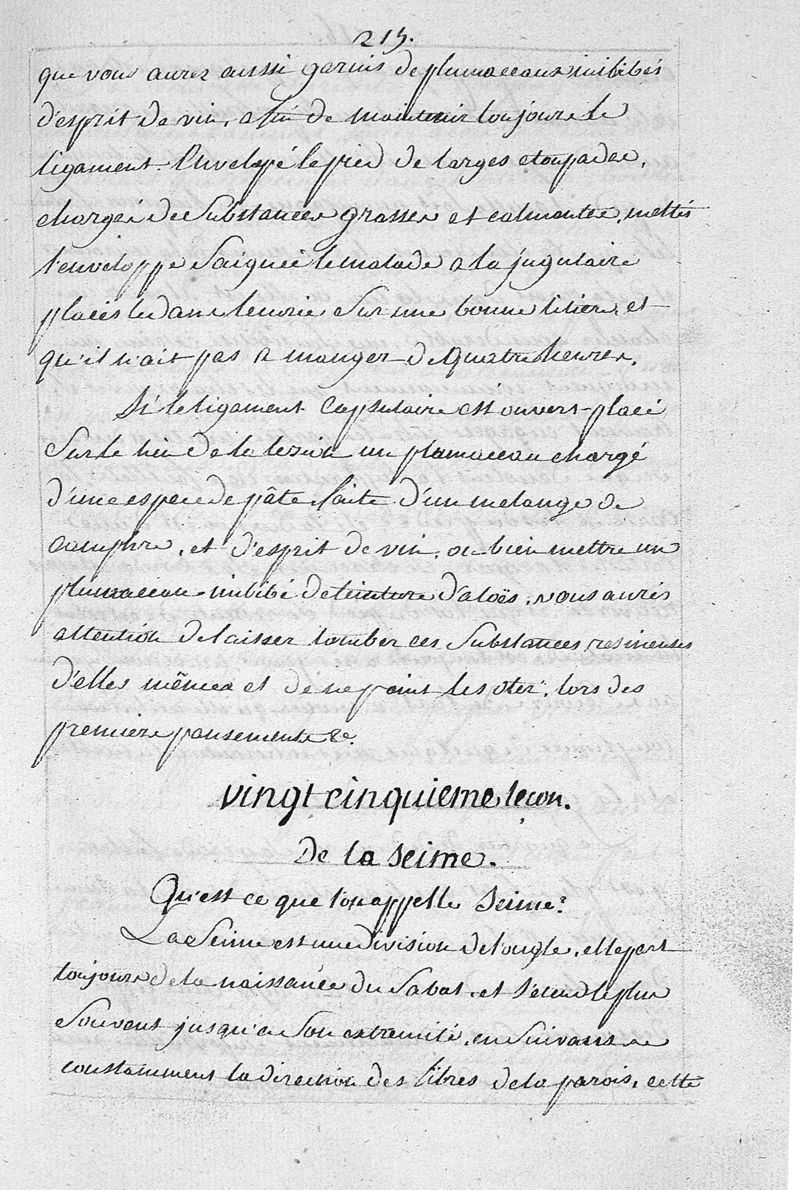 215.
que vous aurez aussi garnis de plumaceaux imbibés
d'esprit de vin, afin de maintenir toujours le
ligament. Envelopé le pied de larges etoupades,
chargés de Substances grasses et calmantes, mettés
l'enveloppe Saignée le malade a la jugulaire
placés le dans l'ecurie Sur une bonne litiere, et
qu'il n'ait pas a manger de quatre heures.
Si le ligament Capsulaire est ouvert placé
Sur le lieu de la lezion un plumaceau chargé
d'une espece de pâte faite d'un melange de
camphre, et d'esprit de vin, ou bien mettre un
plumaceau imbibé de tinture d'aloës, vous aurés
attention de laisser tomber ces Substances resineuses
d'elles mêmes et de ne point les oter, lors des
premiers pansements &c
vingt cinquieme leçon.
De la seime.
Qu'est ce que l'on appelle Seime?
La Seime est une division de l'ongle, elle part
toujours de la naissance du Sabot, et s'etend le plus
Souvent jusqu'a Son extremité, en Suivans
constamment la direction des fibres de la parois, cette